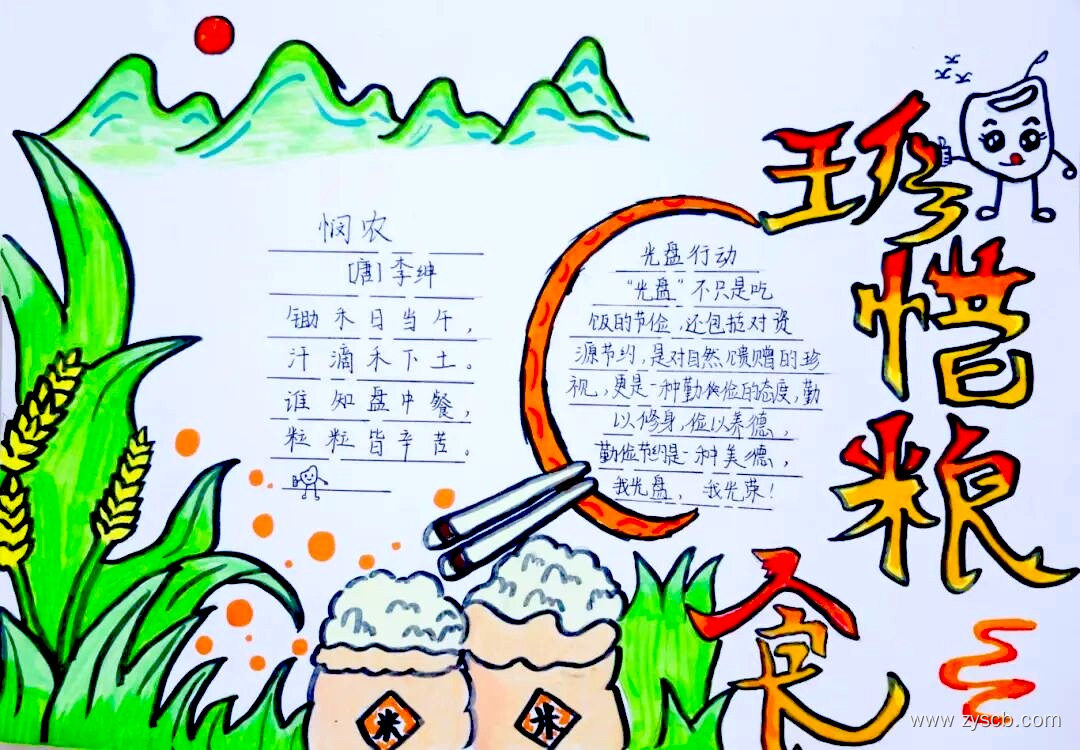 珍惜粮食
悯农
[唐] 李绅
锄禾日当午，
汗滴禾下土。
谁知盘中餐，
粒粒皆辛苦。
光盘行动
“光盘”不只是吃
饭的节俭，还包括对资
源节约，是对自然馈赠的珍
视，更是一种勤俭的态度，勤
以修身，俭以养德，
勤俭节约是一种美德，
我光盘，我光荣！
米
米
www.zyscb.com